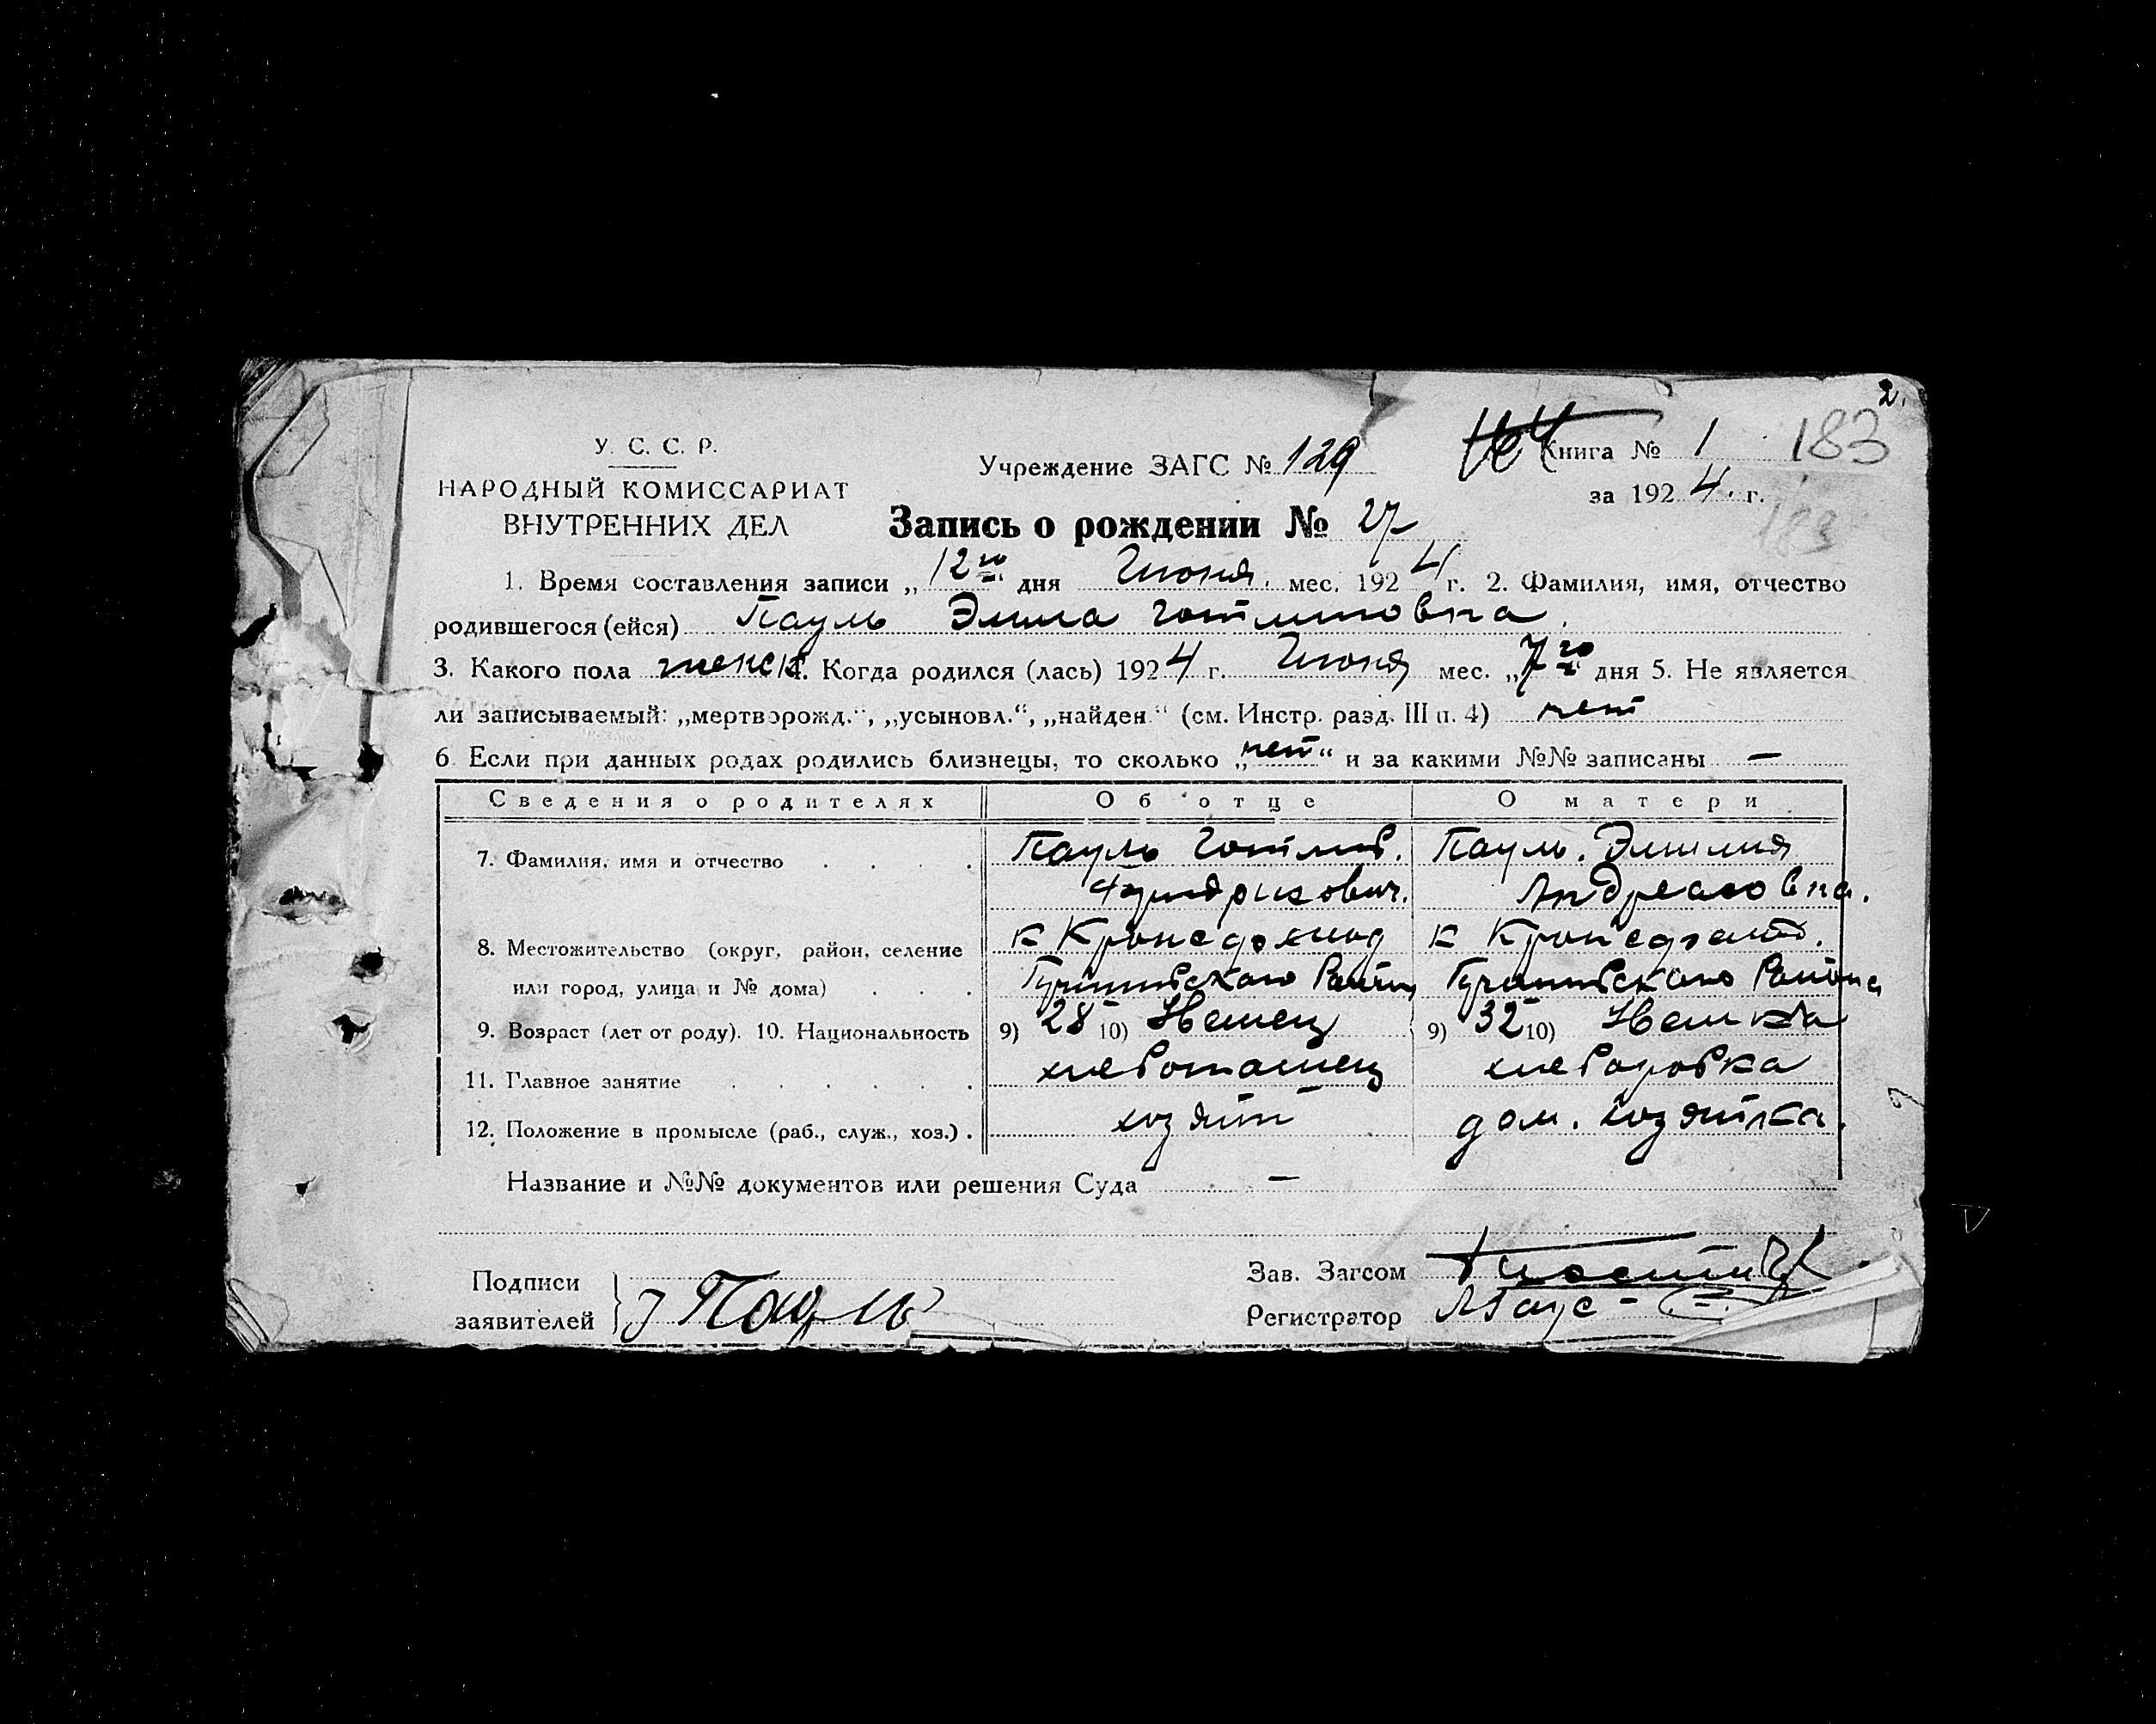 2.
У. С. С. Р.
НАРОДНЫЙ КОМИССАРИАТ
ВНУТРЕННИХ ДЕЛ
Учреждение ЗАГС № 129
164 Книга № 1 183
за 1924. г.
183
Запись о рождении № 27
1. Время составления записи „12го дня Июня мес. 1924 г. 2. Фамилия, имя, отчество
родившегося (ейся) Пауль Элла Готлибовна.
3. Какого пола женск. 4. Когда родился (лась) 1924 г. Июня мес. „7го" дня 5. Не является
ли записываемый: „мертворожд.“, „усыновл.“, „найден.“ (см. Инстр. разд. III п. 4) нет
6. Если при данных родах родились близнецы, то сколько „нет“ и за какими №№ записаны —
Сведения о родителях Об отце О матери
7. Фамилия, имя и отчество Пауль Готлиб. Пауль. Эмилия
Андреасовна.
8. Местожительство (округ, район, селение к к
или город, улица и № дома) Района
9. Возраст (лет от роду). 10. Национальность 9) 28 10) Немец 9) 32 10) Немка
11. Главное занятие хлебопашец хлеборобка
12. Положение в промысле (раб., служ., хоз.). хозяин дом. хозяйка.
Название и №№ документов или решения Суда —
Подписи
заявителей Пауль
Зав. Загсом
Регистратор Маус -